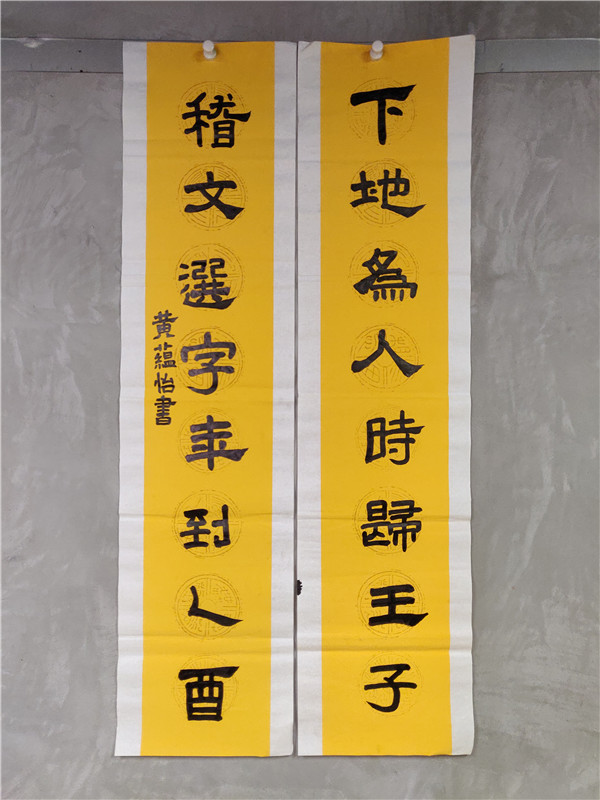 下地為人時歸壬子
稽文選字年到乙酉
黄蘊怡書